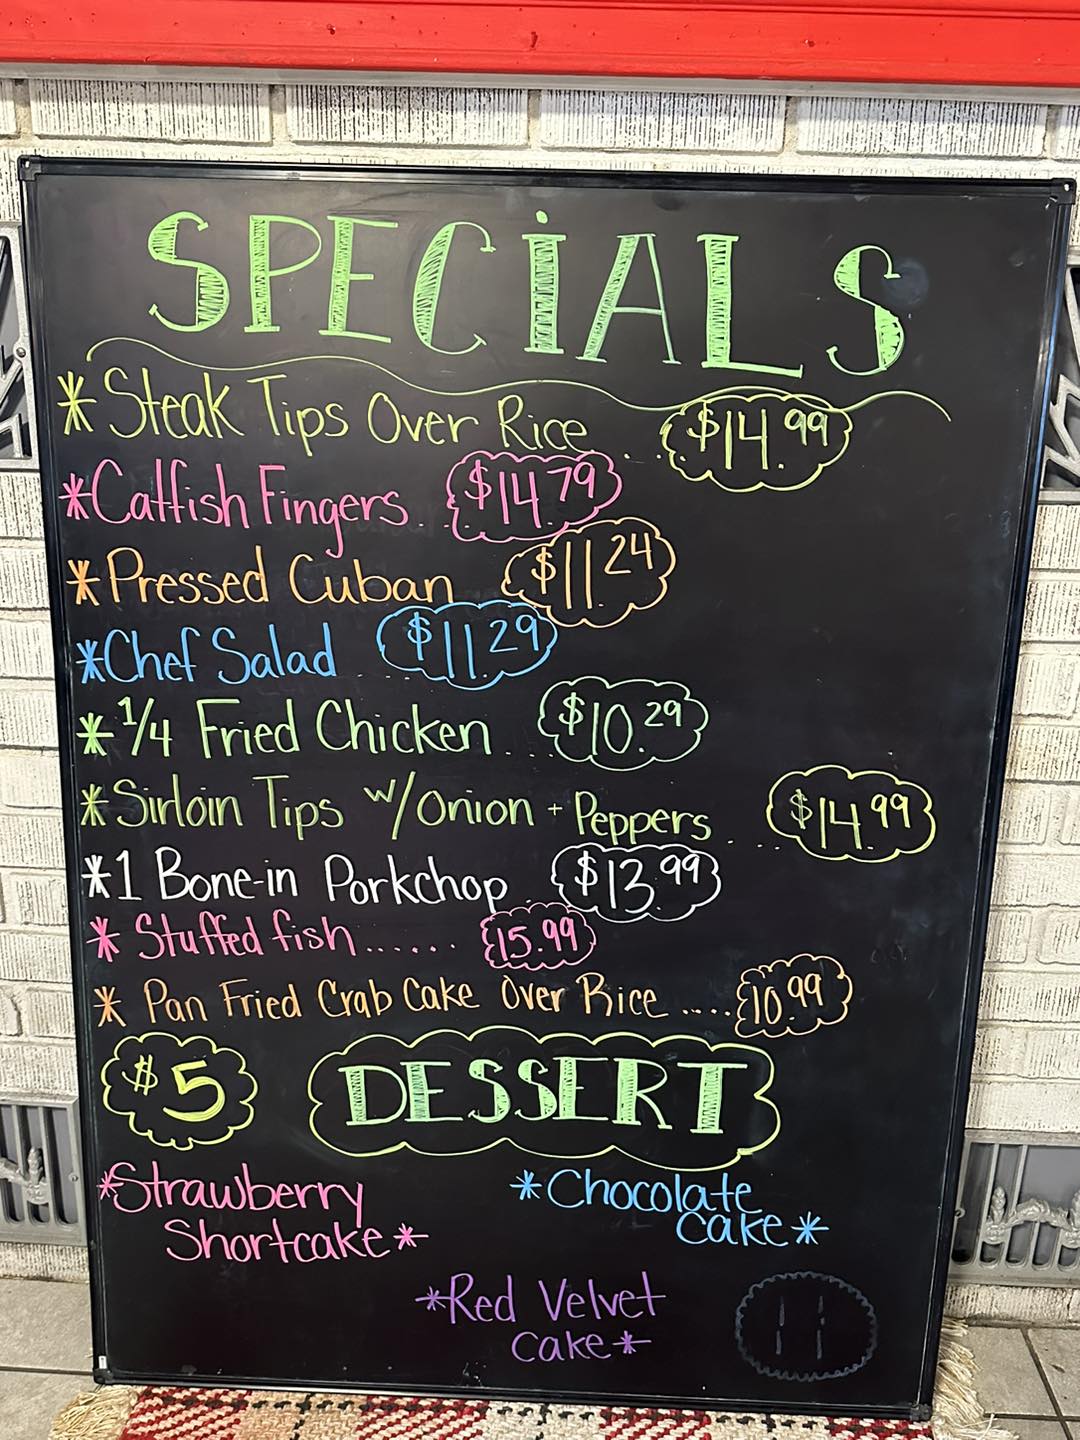 SPECiALS
* Steak Tips Over Rice .... $14.99
* Catfish Fingers... $14.79
* Pressed Cuban $11.24
* Chef Salad .... $11.29
* 1/4 Fried Chicken.... $10.29
* Sirloin Tips w/ onion + Peppers .... $14.99
* 1 Bone-in Porkchop. $13.99
* Stuffed fish ...... 15.99
* Pan Fried Crab Cake Over Rice .... 10.99
$5 DESSERT
*Strawberry *Chocolate
Shortcake* Cake*
*Red Velvet
Cake*